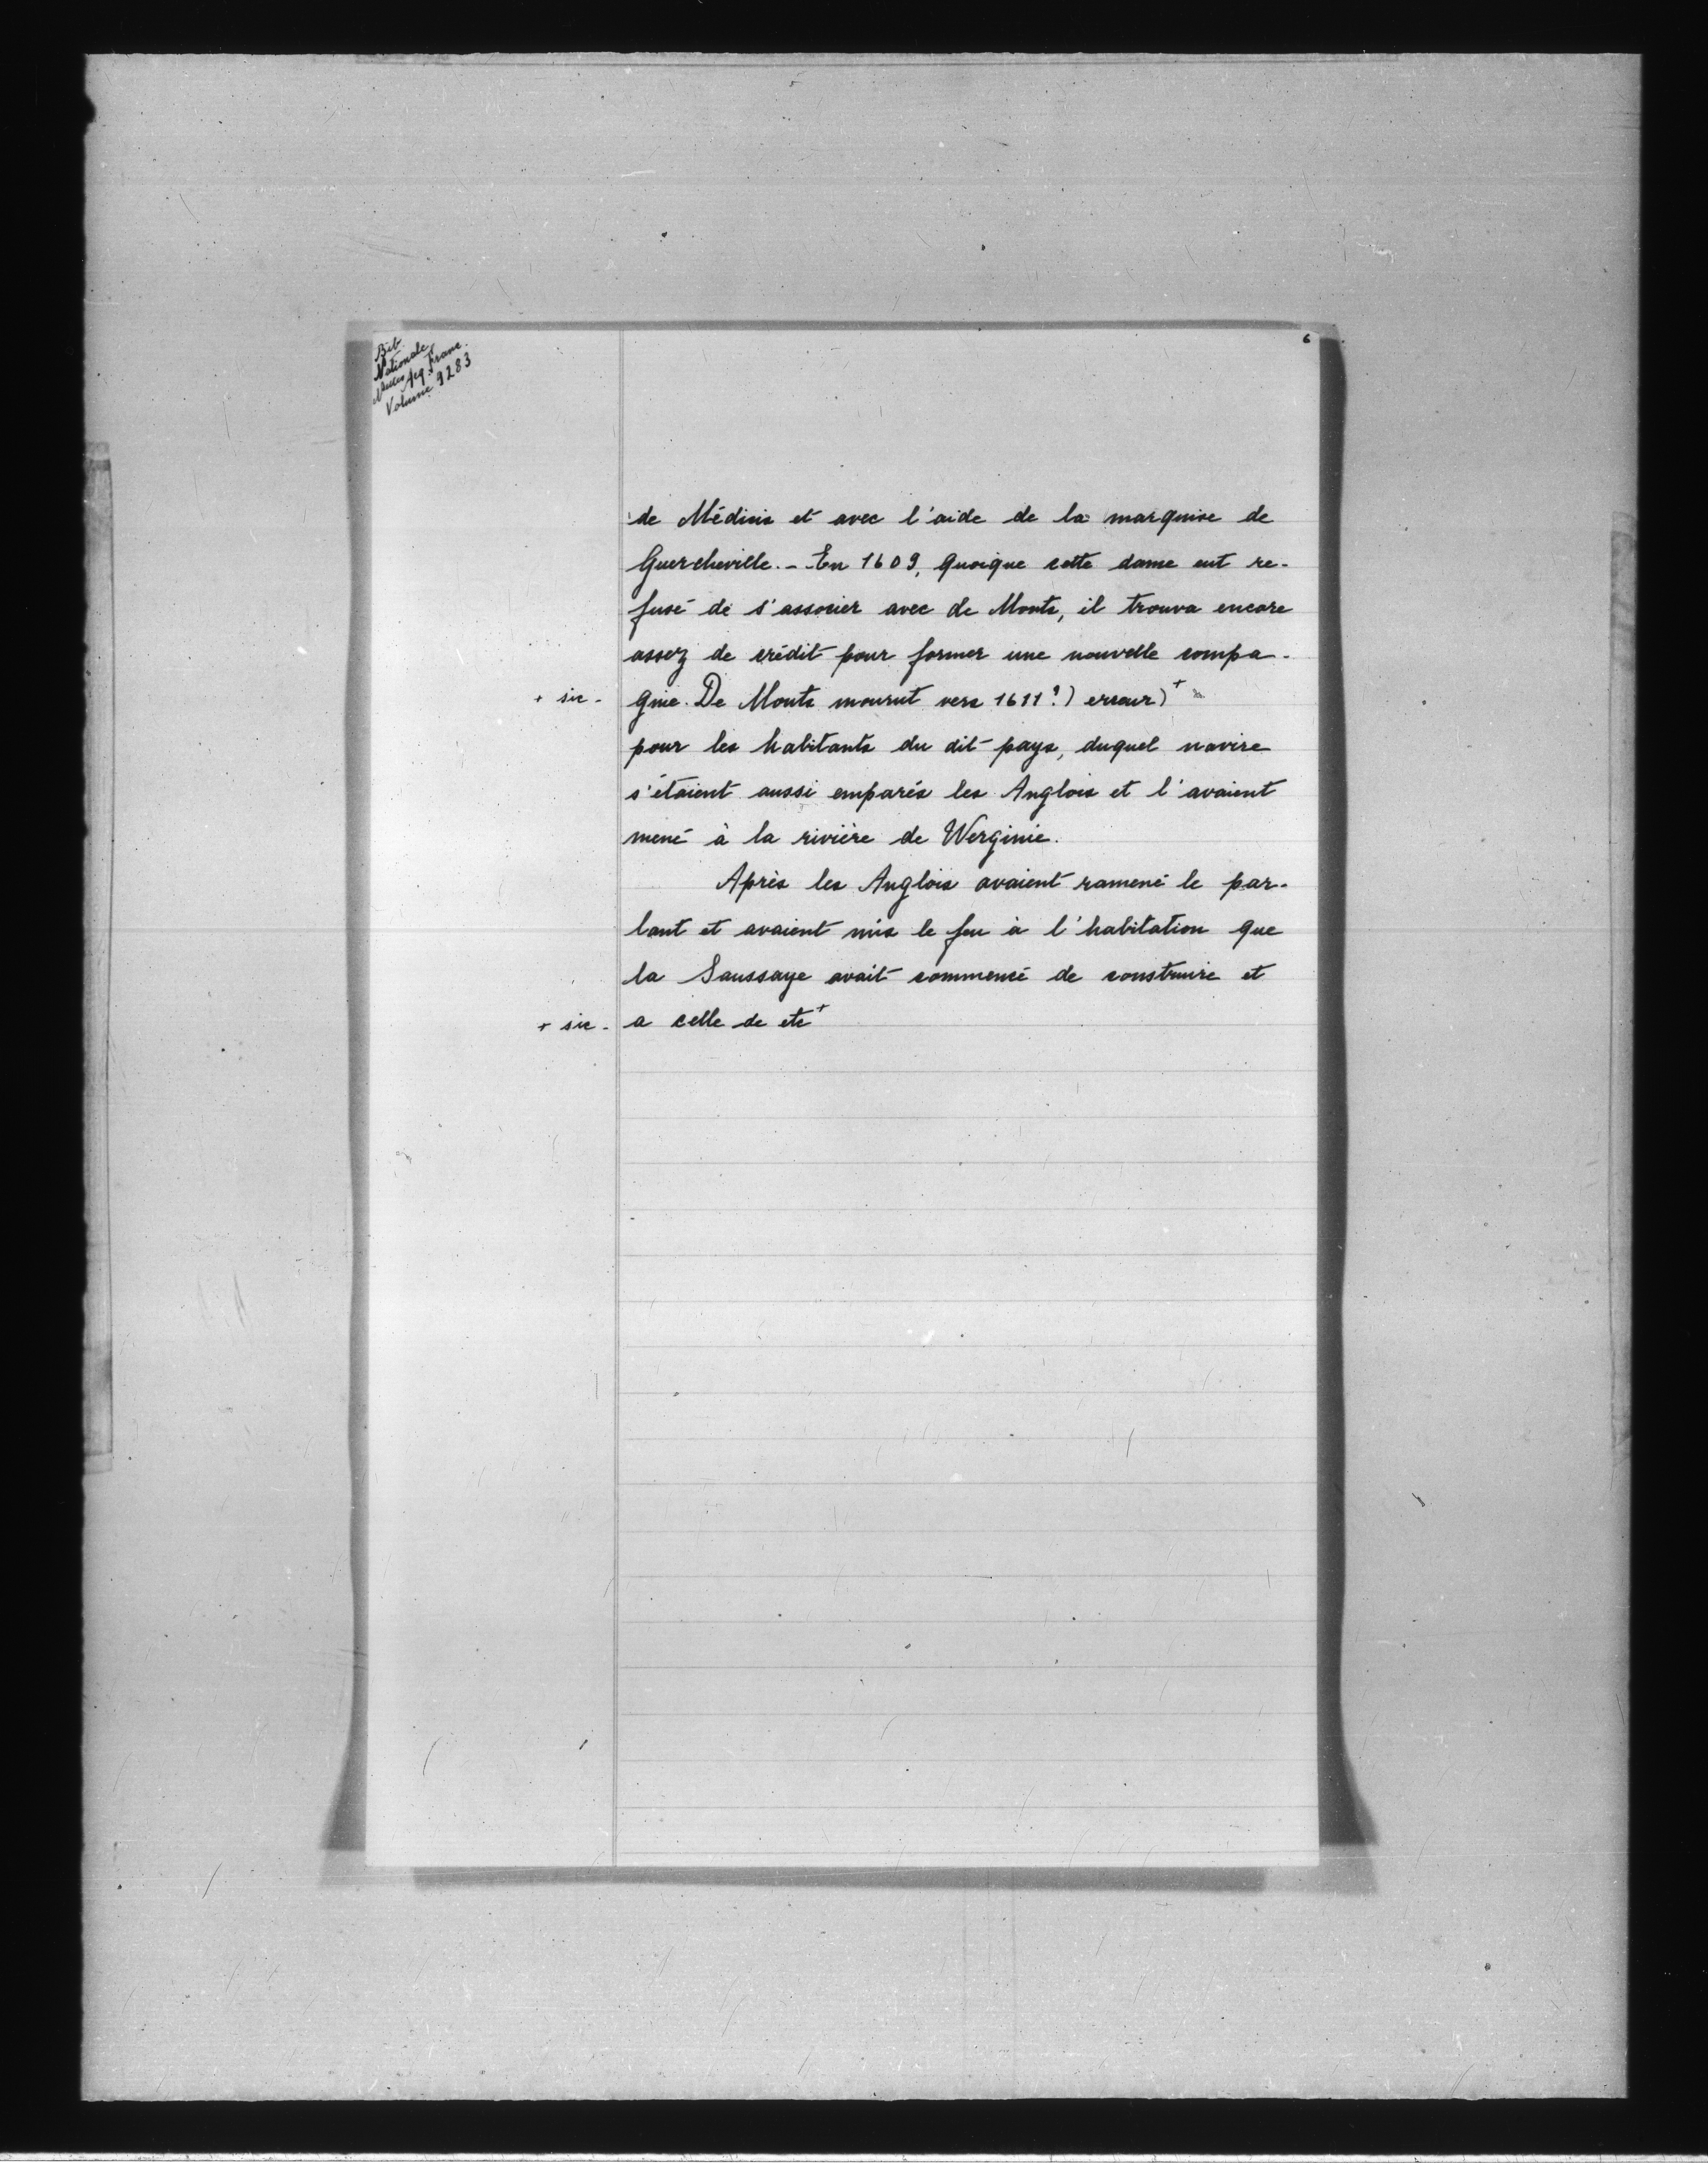 6
Bib.
Nationale
Nelles Acq. Franc.
Volume 9283
de Médicis et avec l'aide de la marquise de
Guercheville. - En 1609, quoique cette dame eut re-
fusé de s'associer avec de Monts, il trouva encore
assez de crédit pour former une nouvelle compa-
+ sic - gnie. De Monts mourut vers 1611?) erreur)+
pour les habitants du dit pays, duquel navire
s'étaient aussi emparés les Anglois et l'avaient
mené à la rivière de Werginie.
Après les Anglois avaient ramené le par-
lant et avaient mis le feu à l'habitation que
la Saussaye avait commencé de construire et
+ sic - a celle de etc+